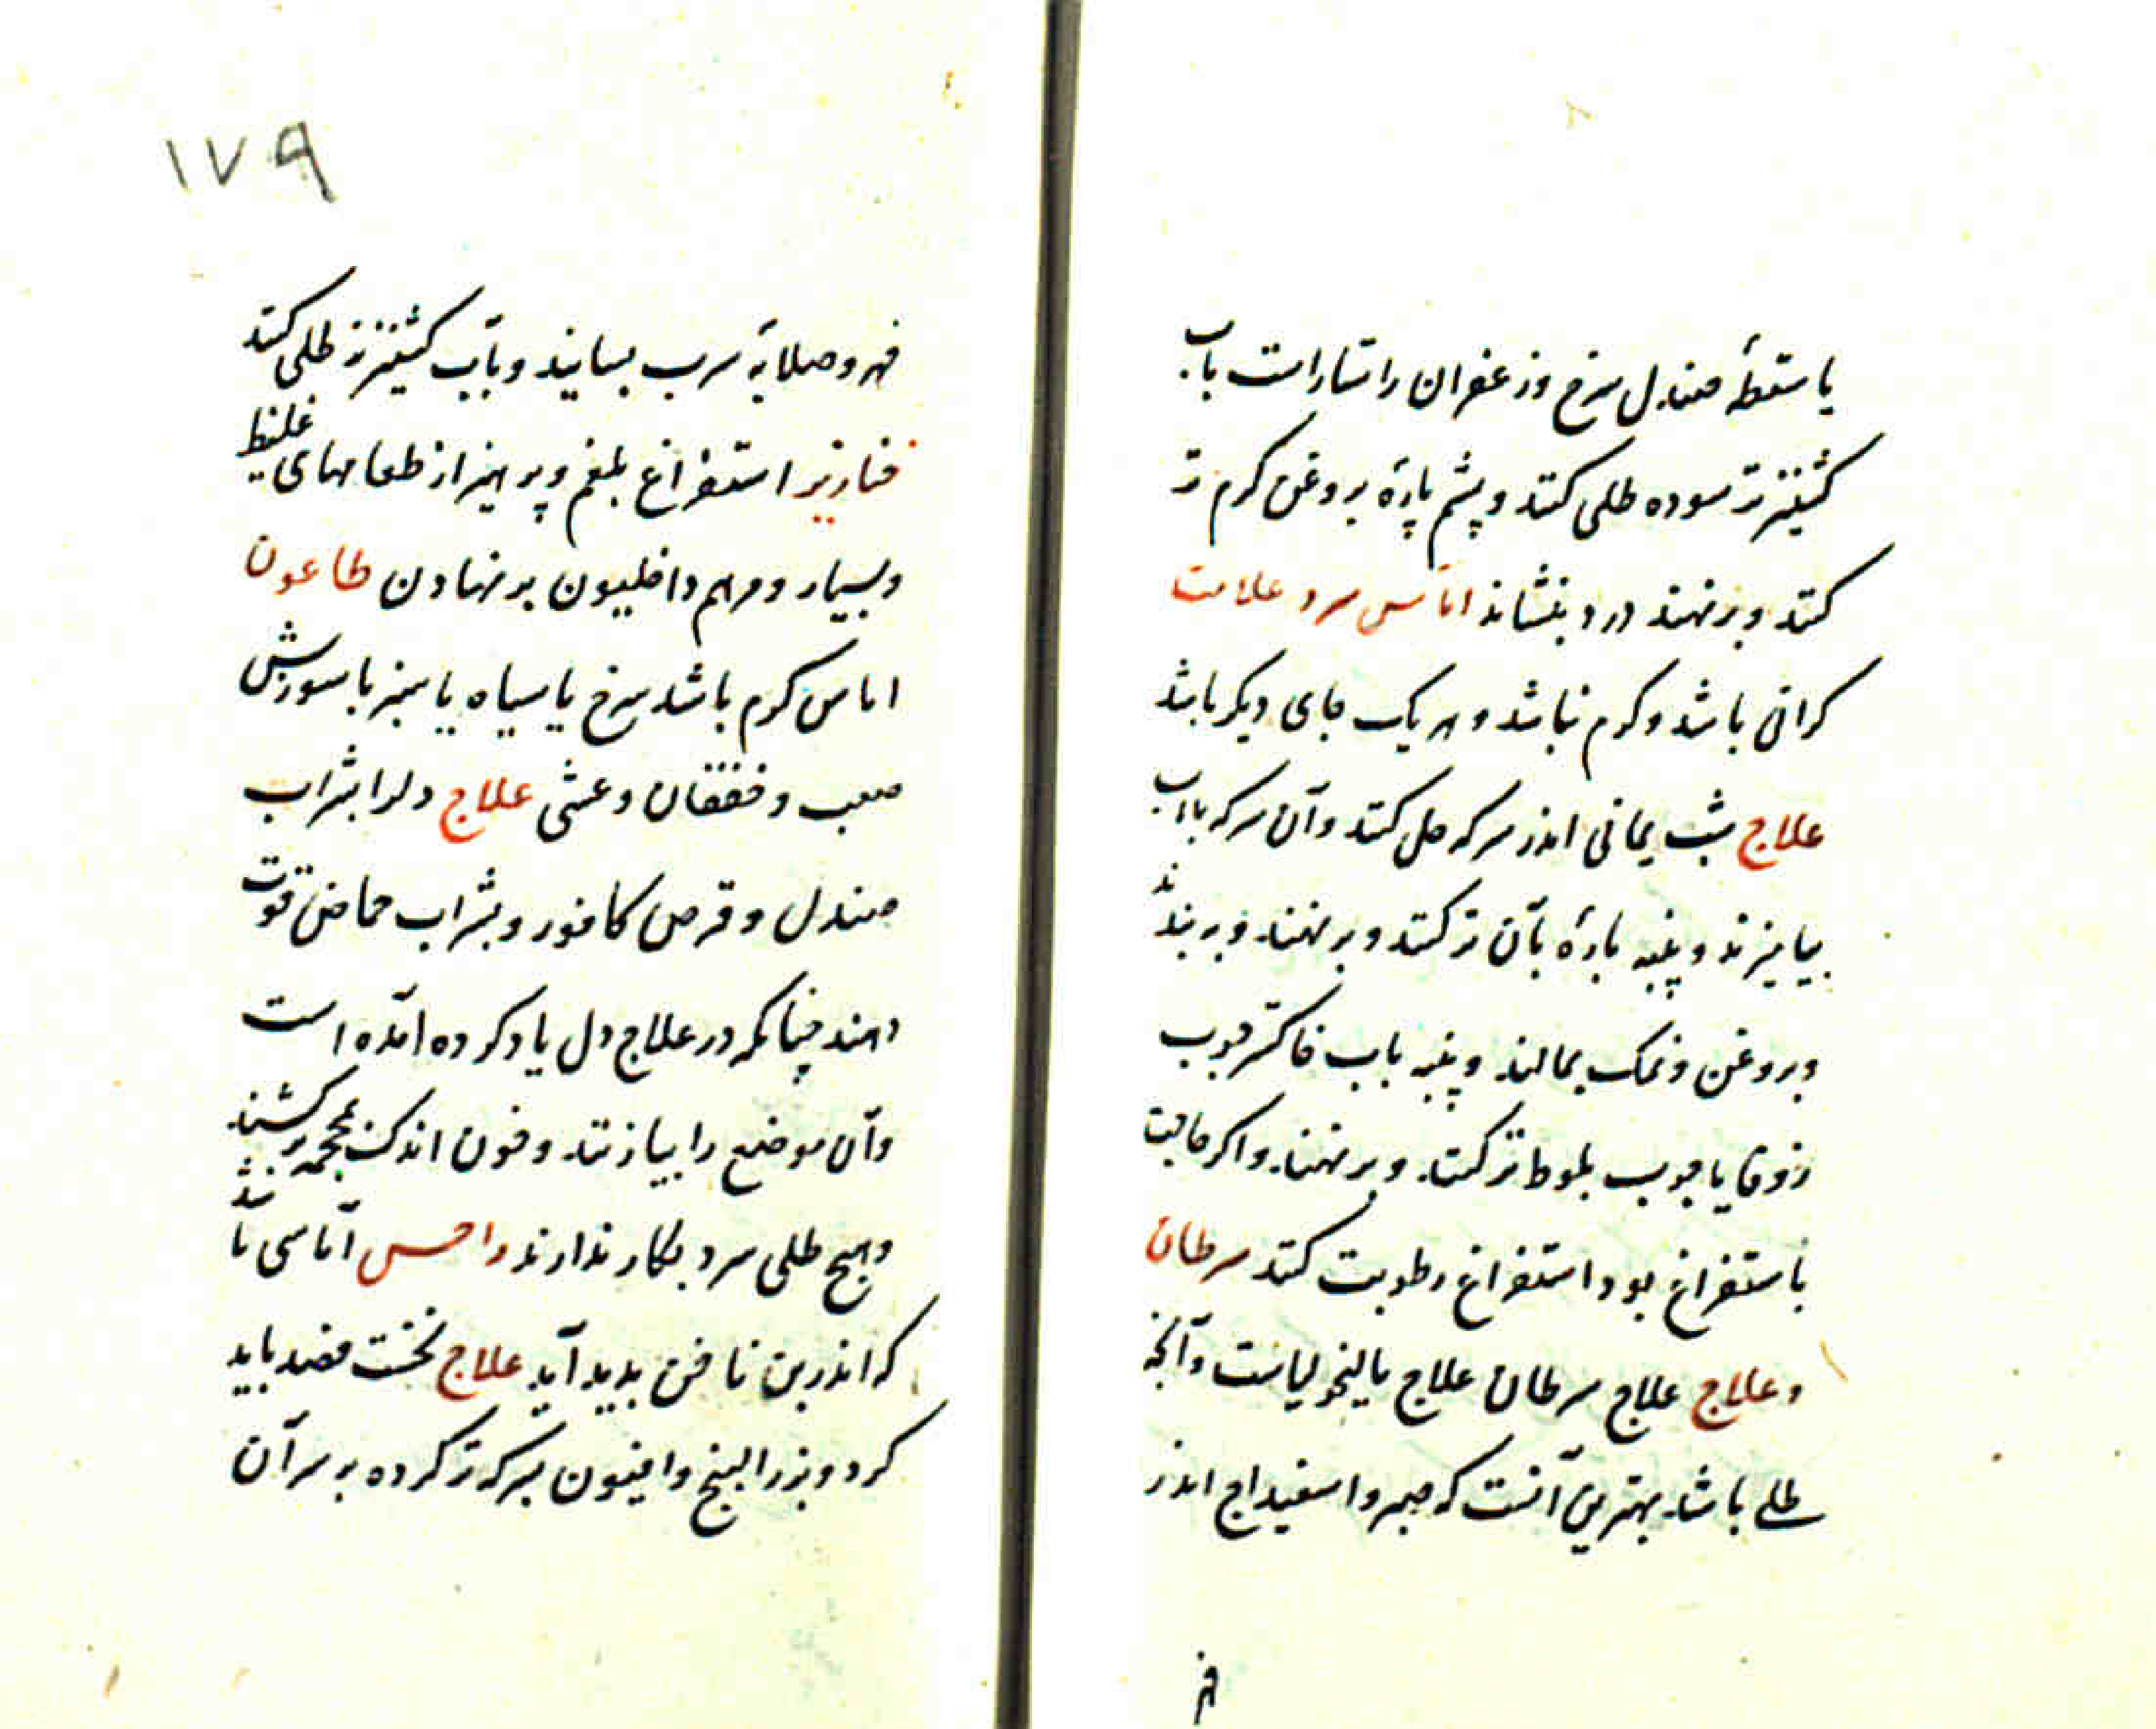 یا سقطهٔ صندل سرخ و زعفران راستا راست بآب
کشنیز تر سوده طلی کنند و پشم پارهٔ بروغن کرم تر
کنند و برنهند درد بنشاند اماس سرد علامت
کرانی باشد و کرم نباشد و هر یک جای دیکر باشد
علاج شب یمانی اندر سرکه حل کنند و آن سرکه باآب
بیامیزند و پنبه پارهٔ بآن تر کنند و برنهند و به بندند
و بروغن و نمک بمالند و پنبه بآب خاکستر چوب
زوفا یا چوب بلوط تر کنند و برنهند و اکر حاجت
باستفراغ بود استفراغ رطوبت کنند سرطان
و علاج علاج سرطان علاج مالیخولیاست و آنچه
طلی باشد بهترین آنست که صبر و اسفیداج اندر
فهر
۱۷۹
فهر و صلایهٔ سرب بسایند و بآب کشنیز تر طلی کنند
خنازیر استفراغ بلغم و پرهیز از طعامهای غلیظ
و بسیار و مرهم داخلیون برنهادن طاعون
اماس کرم باشد سرخ یا سیاه یا سبز با سوزش
صعب و خفقان و غشی علاج دلرا بشراب
صندل و قرص کافور و بشراب حماض قوت
دهند چنانکه در علاج دل یاد کرده آمده است
وآن موضع را بیازنند و خون اندک بمحجمه برکشند
وهیچ طلی سرد بکار ندارند داحس آماسی باشد
که اندر بن ناخن بدید آید علاج نخست فصد باید
کرد و بزرالبنج و افیون بسرکه تر کرده بر سر آن